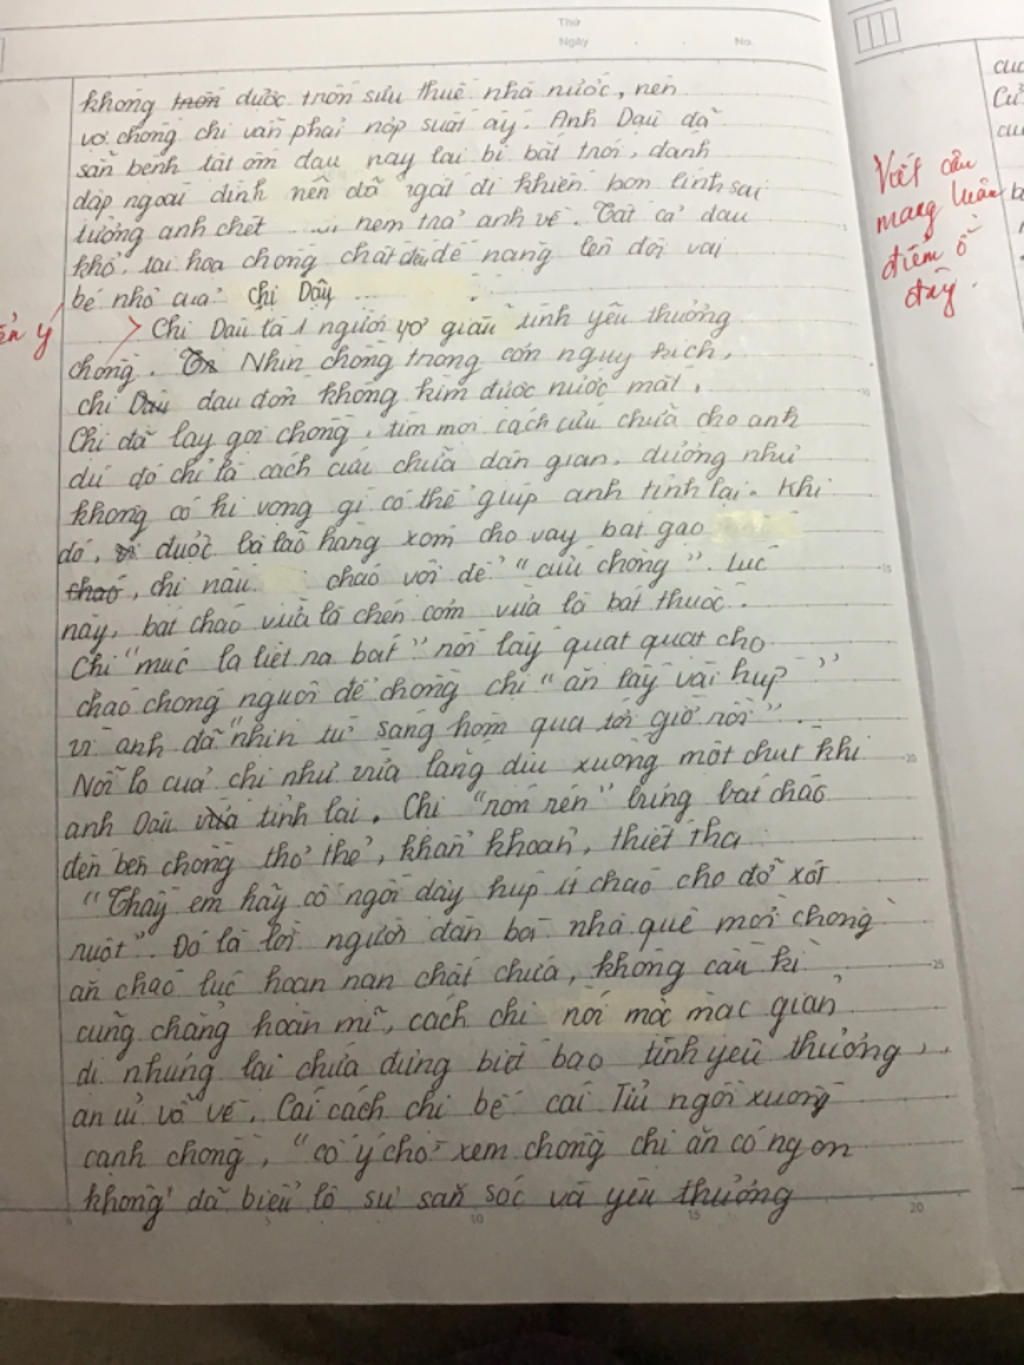 Thứ
Ngày . . No.
không trốn được trốn sưu thuế nhà nước, nên
vợ chồng chị vẫn phải nộp suất ấy. Anh Dậu đã
sẵn bệnh tật ốm đau nay lại bị bắt trói, đánh
đập ngoài đình nên đã ngất đi khiến bọn lính sai
tưởng anh chết ném trả anh về. Tất cả đau
khổ, tai hoạ chồng chất đều đè nặng lên đôi vai
bé nhỏ của chị Dậu
Chị Dậu là 1 người vợ giàu tình yêu thương
chồng. Nhìn chồng trong cơn nguy kịch,
chị Dậu đau đớn không kìm được nước mắt.
Chị đã lay gọi chồng, tìm mọi cách cứu chữa cho anh
dù đó chỉ là cách cứu chữa dân gian, dường như
không có hi vọng gì có thể giúp anh tỉnh lại. Khi
đó, được bà lão hàng xóm cho vay bát gạo
cháo, chị nấu cháo với để "cứu chồng". Lúc
này, bát cháo vừa là chén cơm vừa là bát thuốc.
Chị "múc la liệt ra bát" rồi lấy quạt quạt cho
cháo chóng nguội để chồng chị "ăn lấy vài húp"
vì anh đã "nhịn từ sáng hôm qua tới giờ rồi".
Nỗi lo của chị như vừa lắng dịu xuống một chút khi
anh Dậu vừa tỉnh lại. Chị "rón rén" bưng bát cháo
đến bên chồng thỏ thẻ, khẩn khoản, thiết tha
"Thầy em hãy cố ngồi dậy húp ít cháo cho đỡ xót
ruột". Đó là lời người đàn bà nhà quê mời chồng
ăn cháo lúc hoạn nạn chất chứa, không cầu kì
cũng chẳng hoàn mĩ, cách chị nói mộc mạc giản
dị nhưng lại chứa đựng biết bao tình yêu thương,
an ủi vỗ về. Cái cách chị bế cái Tỉu ngồi xuống
cạnh chồng, "cố ý chờ xem chồng chị ăn có ngon
không" đã biểu lộ sự săn sóc và yêu thương
ý
Viết câu
mang luận
điểm ở
đây.
5 10 15 20
10
15
20
25